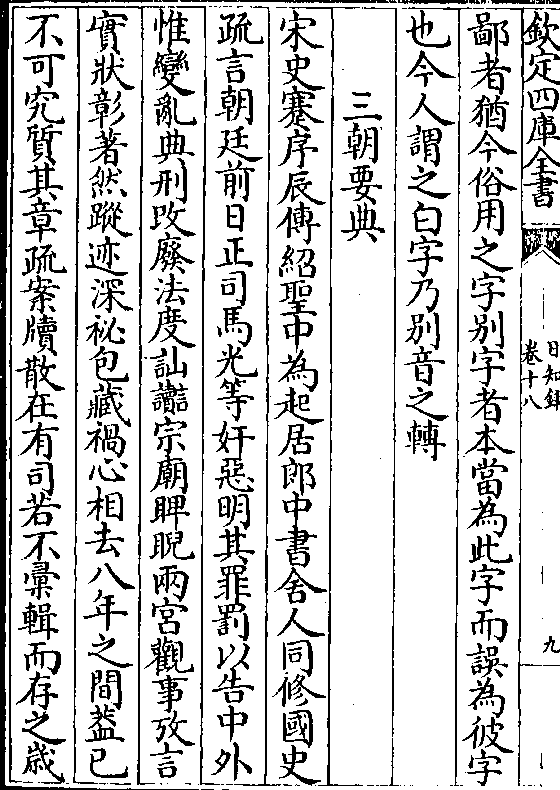 欽定四庫全書
日知錄
卷十八
九
鄙者猶今俗用之字别字者本當為此字而誤為彼字
也今人謂之白字乃别音之轉
三朝要典
宋史蹇序辰傳紹聖中為起居郎中書舍人同修國史
疏言朝廷前日正司馬光等奸惡明其罪罰以告中外
惟變亂典刑改廢法度訕讟宗廟睥睨兩宫觀事攷言
實狀彰著然蹤迹深祕包藏禍心相去八年之間葢已
不可究質其章疏案牘散在有司若不彚輯而存之歳